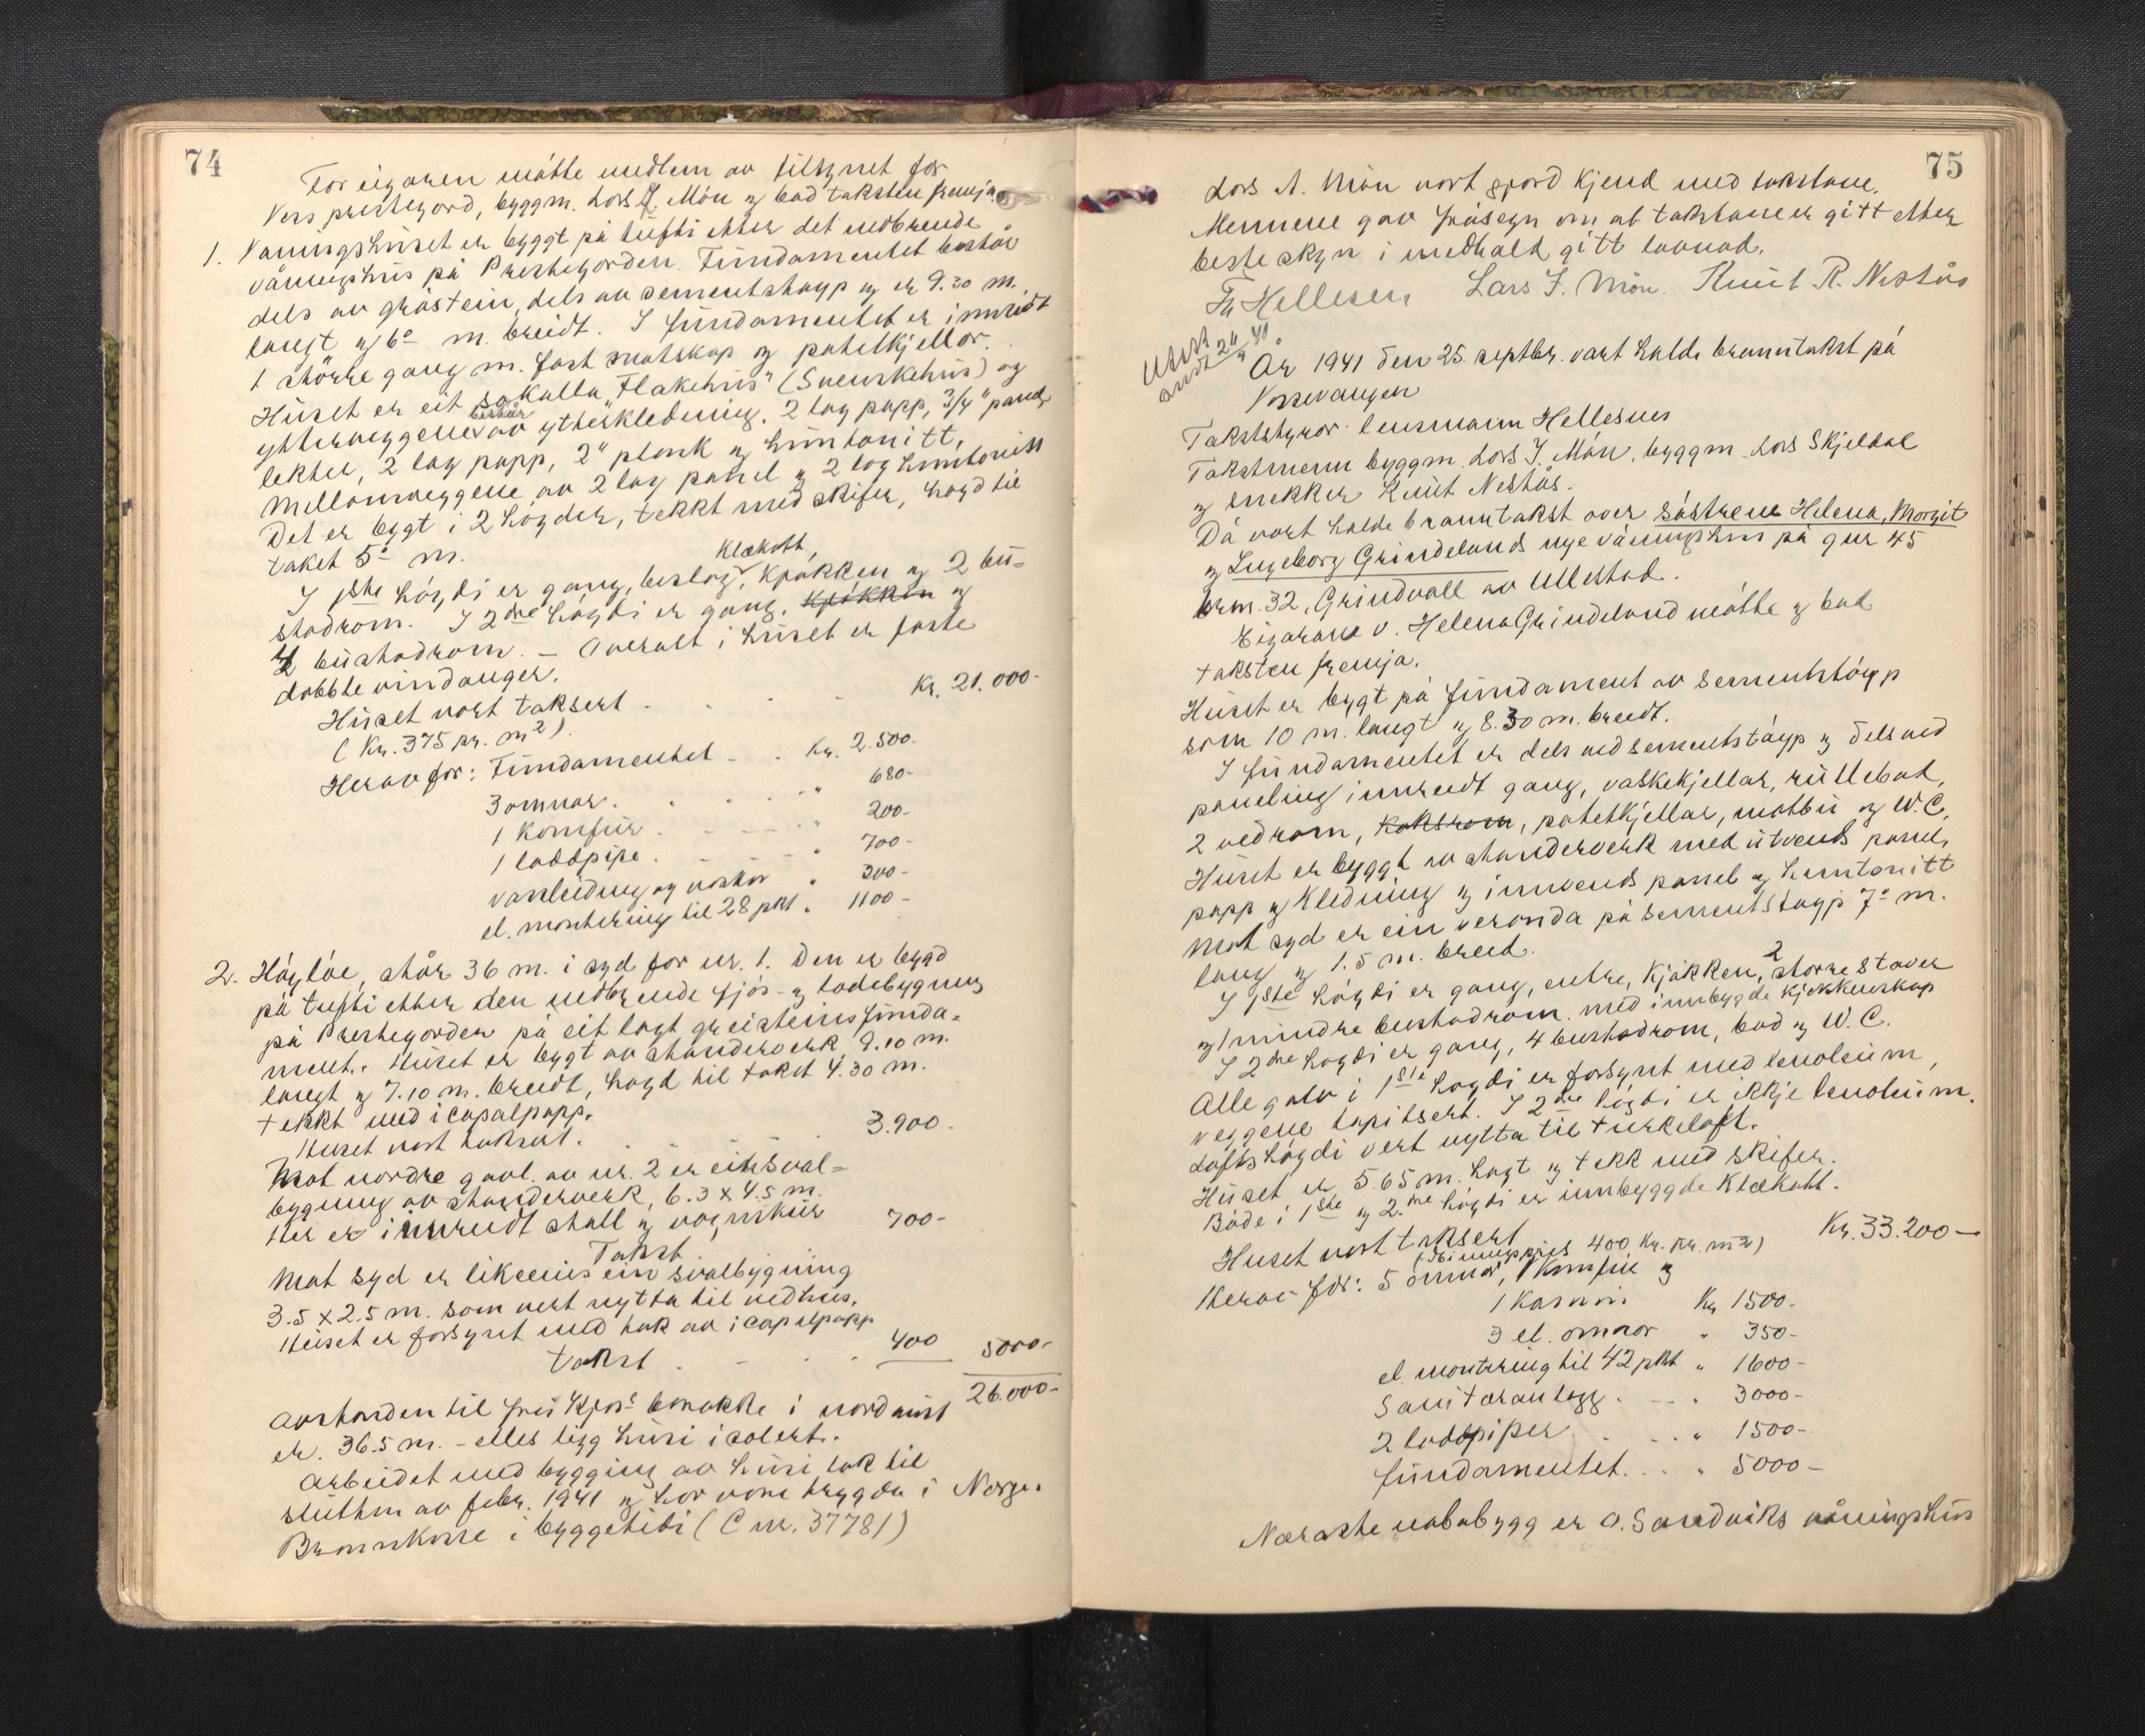 74
For eigaren møtte medlem av tilsynet for
Voss prestegard, byggm. Lars J. Møn og bad taksten fremja.
1. Våningshuset er byggt på tufti etter det nedbrende
våningshus på Prestegorden. Fundamentet består
dels av gråstein, dels av sementstøyp og er 9.30 m.
langt og 6.- m. breidt. I fundamentet er innreidt
1 større gang m. fast matskap og potetkjellar.
Huset er eit sokalla "Flakehus" (Svenskehus) og
ytterveggene består av ytterkledning, 2 lag papp, 3/4" panel,
lekter, 2 lag papp, 2" plank og huntonitt.
Mellomveggene av 2 lag panel og 2 lag huntonitt
Det er bygt i 2 høgder, tekkt med skifer, høgd til
taket 5.- m.
I 1ste høgdi er gang, beslag, klækott, kjøkken og 2 bu-
stadrom. I 2dre høgdi er gang, kjøkken og
4 bustadrom. - Overalt i huset er faste
dobble vindauger.
Huset vart taksert . . . . Kr. 21.000.-
(Kr. 375 pr. m2).
Herav for: Fundamentet . . Kr. 2.500.-
3 omnar . . . . " 680-
1 komfur . . . " 200-
1 laddpipe . . . " 700-
vassleidning og vaskar " 300-
el. montering til 28 pkt " 1100-
2. Høyløe, står 36 m. i syd for nr. 1. Den er bygd
på tufti etter den nedbrende fjøs- og ladebygning
på Prestegorden på eit lagt greisteinsfunda-
ment. Huset er bygt av standerverk, 9.10 m.
langt og 7.10 m. breidt, høgd til taket 4.30 m.
tekkt med icopalpapp.
Huset vart taksert. . . . 3.900.-
Mot nordre gavl av nr. 2 er eit sval-
bygning av standerverk, 6.3 x 4.5 m.
Her er innreidt stall og vognskur
Takst. 700-
Mot syd er likeeins ein svalbygning
3.5 x 2.5 m. som vert nytta til vedhus.
Huset er forsynt med tak av icopalpapp
Takst . . . . 400 5000.-
26.000.-
Avstanden til fru Kjos' brakke i nordaust
er 36.5 m. - elles ligg husi isolert.
Arbeidet med bygging av husi tok til
slutten av febr. 1941 og har vore trygda i Norges
Brannkasse i byggetidi (C nr. 37781)
75
Lars A. Møn vart gjord kjend med takstane.
Mennene gav fråsegn om at takstane er gitt etter
beste skyn i medhald gitt lovnad.
Fr Hellesen Lars J. Møn. Knut R. Nestås
Utskr
26/9 41
År 1941 den 25. septbr. vart halde branntakst på
Vossevangen
Takststyrar lensmann Hellesnes
Takstmenn byggm. Lars J. Møn, byggm. Lars Skjeldal
og snekker Knut Nestås.
Då vart halde branntakst over søstrene Helena, Margit
og Ingeborg Grindelands nye våningshus på gnr 45
brnr. 32, Grindvoll av Ullestad.
Eigarane v. Helena Grindeland møtte og bad
taksten fremja.
Huset er bygt på fundament av sementstøyp
som 10 m. langt og 8.30 m. breidt.
I fundamentet er dels ved sementstøyp og dels ved
paneling innreidt gang, vaskekjellar, rullebod,
2 vedrom, koksrom, potetkjellar, matbu og W.C.
Huset er byggt av standerverk med utvends panel,
papp og kledning og innvends panel og huntonitt
Mot syd er ein veranda på sementstøyp 7.- m.
lang og 1.5 m. breid.
I 1ste høgdi er gang, entre, kjøkken, 2 større stover
og 1 mindre bustadrom. med innbygde kjøkkenskap
I 2dre høgdi er gang, 4 bustadrom, bad og W.C.
Alle golv i 1ste høgdi er forsynt med lenoleum,
veggene tapitsert. I 2dre høgdi er ikkje lenoleum.
Loftshøgdi vert nytta til turkeloft.
Huset er 5.65 m. høgt og tekk med skifer.
Både i 1ste og 2.dre høgdi er innbyggde klækott.
Huset vart taksert Kr. 33.200-
(Einingspris 400 Kr. pr. m2)
Herav for: 5 omnar, 1 komfur og
1 kamin Kr 1500.-
3 el. omnar " 350-
el. montering til 42 pkt " 1600-
Sanitæranlegg . . . 3000-
2 laddpiper . . . " 1500-
fundamentet . . . " 5000-
Næraste nabobygg er O. Sandviks våningshus